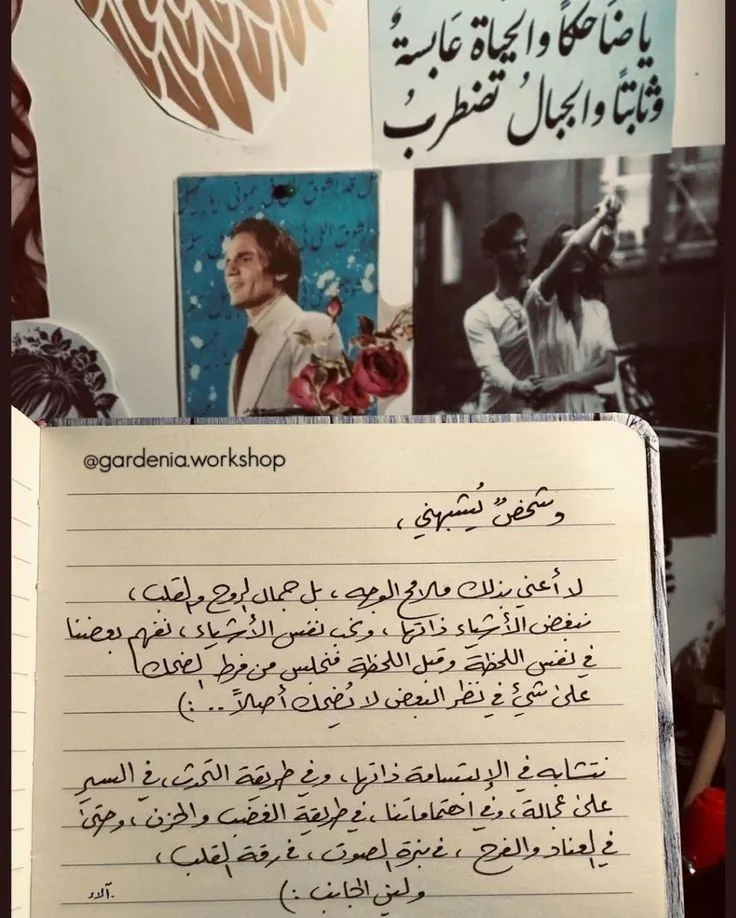 يا ضَاحكًا والحياة عَابسةٌ
وثابتًا والجبالُ تضطربُ
قد الشوق
عيوني يا
الشوق اللي
@gardenia.workshop
وشخصٌ يُشبهني ،
لا أعني بذلك ملامح الوجه ، بل جمال الروح والقلب ،
نبغض الأشياء ذاتها ، ونحب نفس الأشياء ، نفهم بعضنا
في نفس اللحظة وقبل اللحظة فنجلس من فرط الضحك
على شيءٌ في نظر البعض لا يُضحك أصلاً .. :)
نتشابه في الإبتسامة ذاتها ، وفي طريقة التحدث ، في السير
على عجالة ، وفي اهتماماتنا ، في طريقة الغضب والحزن ، وحتى
في العناد والفرح ، في نبرة الصوت ، في رقة القلب ،
ولين الجانب :)
آلاء.